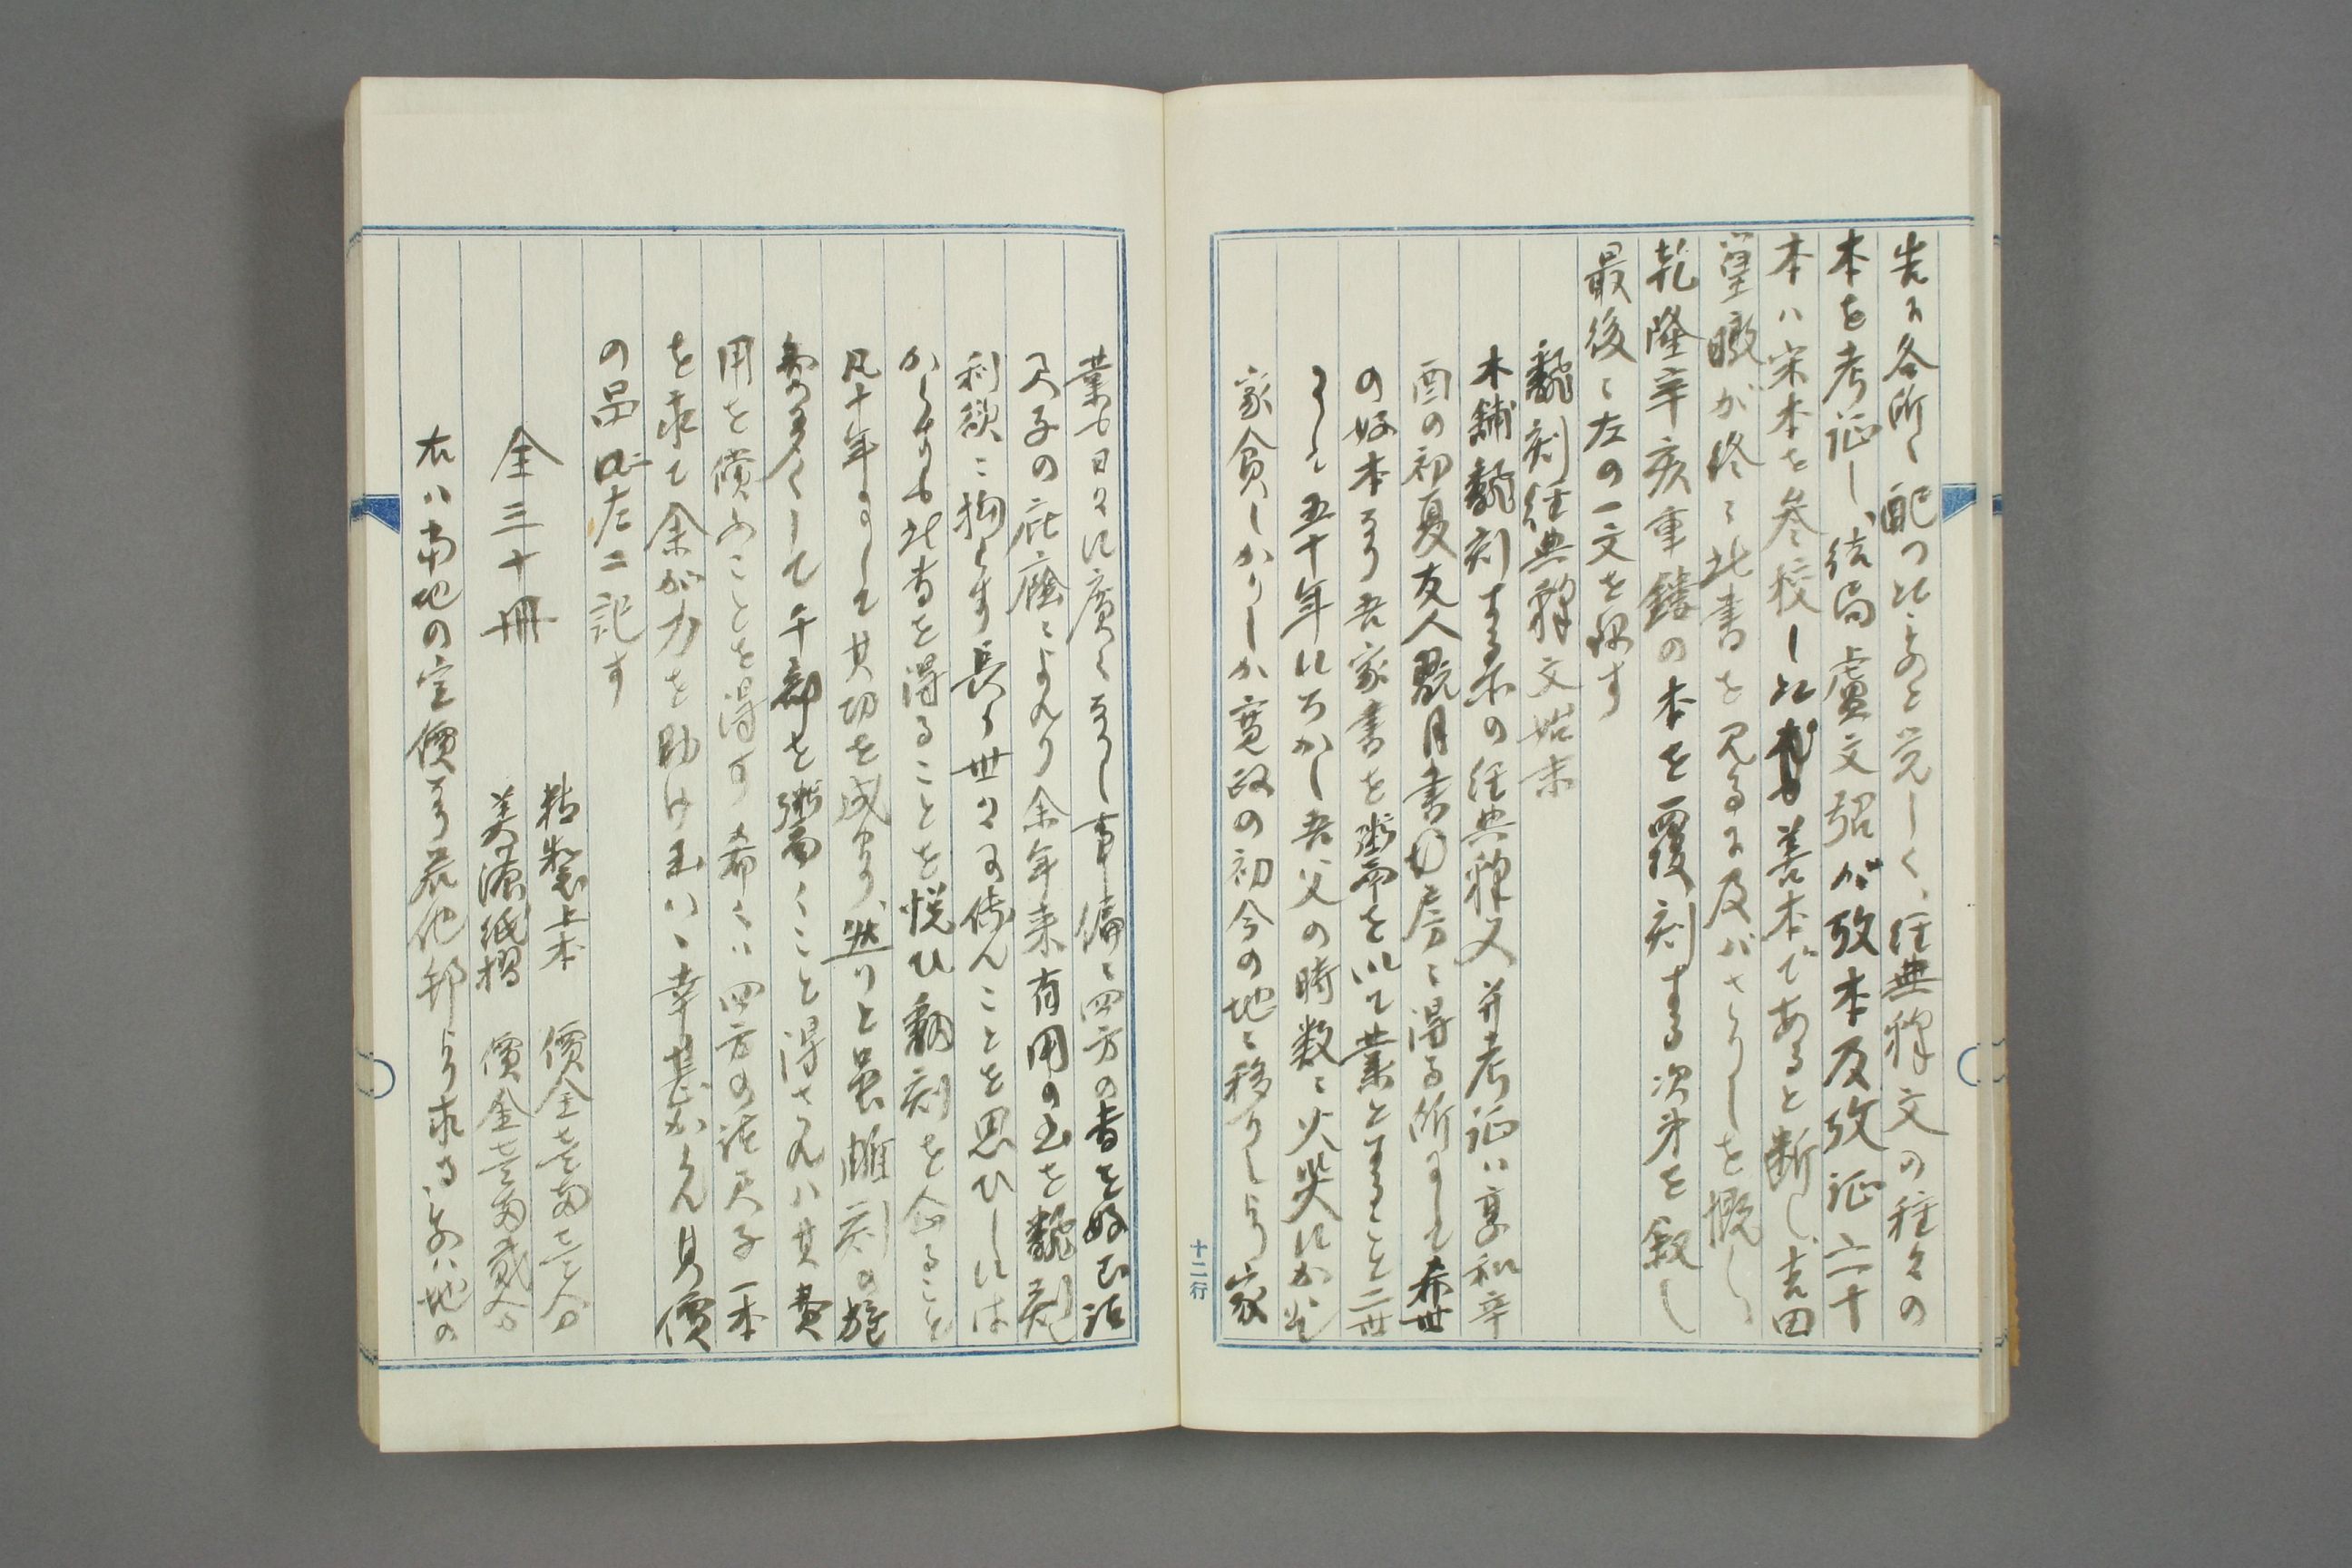 先に各所へ配つたものと覚しく、経典釋文の種々の
本を考証し、結局盧文弨が攷本及攷証二十
本ハ宋本を参校した尤も善本であると断し、吉田
篁墩が終に此書を見るに及バさりしを慨し、
乾隆辛亥重鐫の本を覆刻する次第を叙し
最後ニ左の一文を録す
飜刻経典釋文始末
木鋪飜刻する所の経典釋文并考証ハ享和辛
酉の初夏友人翫月書房ニ得る所にして希世
の好本なり吾家書を粥を以て業とすること二世
こゝに五十年にちかし吾父の時数々火災にかゝり
家貧しかりしか寛政の初今の地ニ移りしより家
業も日々に廣くなりし事偏ニ四方の書を好む諸
君子の庇蔭ニよれり余年来有用の書を飜刻
利欲ニ拘らす長く世々に傳んことを思ひしには
からすも此書を得ることを悦ひ飜刻を企ること
凡十年にして其功を成せり、然りと雖雕刻の施
費多くして千部を粥くこと得されハ其費
用を償ふことを得す希くハ四方の諸君子一本
を求て余が力を助け玉ハヽ幸甚からん其價
の品四左ニ記す
全三十冊
精製上本 價金壹両壹分
美濃紙摺 價金壹両貳分
右ハ当地の定價なり若他邦より求る時ハ地の
十二行